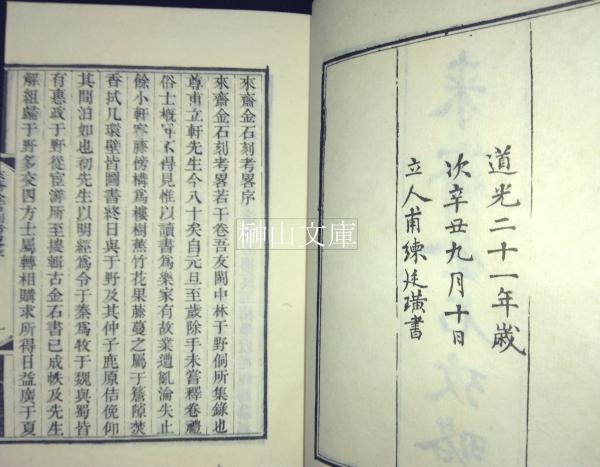 道光二十一年歲
次辛丑九月十日
立人甫練廷璜書
來齋金石刻考畧序
來齋金石刻考畧若干卷吾友閩中林于野侗所集錄也
尊甫立軒先生今八十矣自元旦至歲除手未嘗釋卷禮
俗士概不得見惟以讀書爲樂家有故業遭亂淪失止
餘小軒寄藤傍構爲樓樹蕉竹花果藤蔓之屬于簷隙焚
香拭几環壁皆圖書終日與于野及其仲子鹿原佶俛仰
其間泊如也初先生以明經爲令于秦爲牧于魏與蜀皆
有惠政于野從宦游所至摟輯古金石書已成帙及先生
解組歸于野多交四方士屬轉相購求所得日益廣于夏
榊山文庫